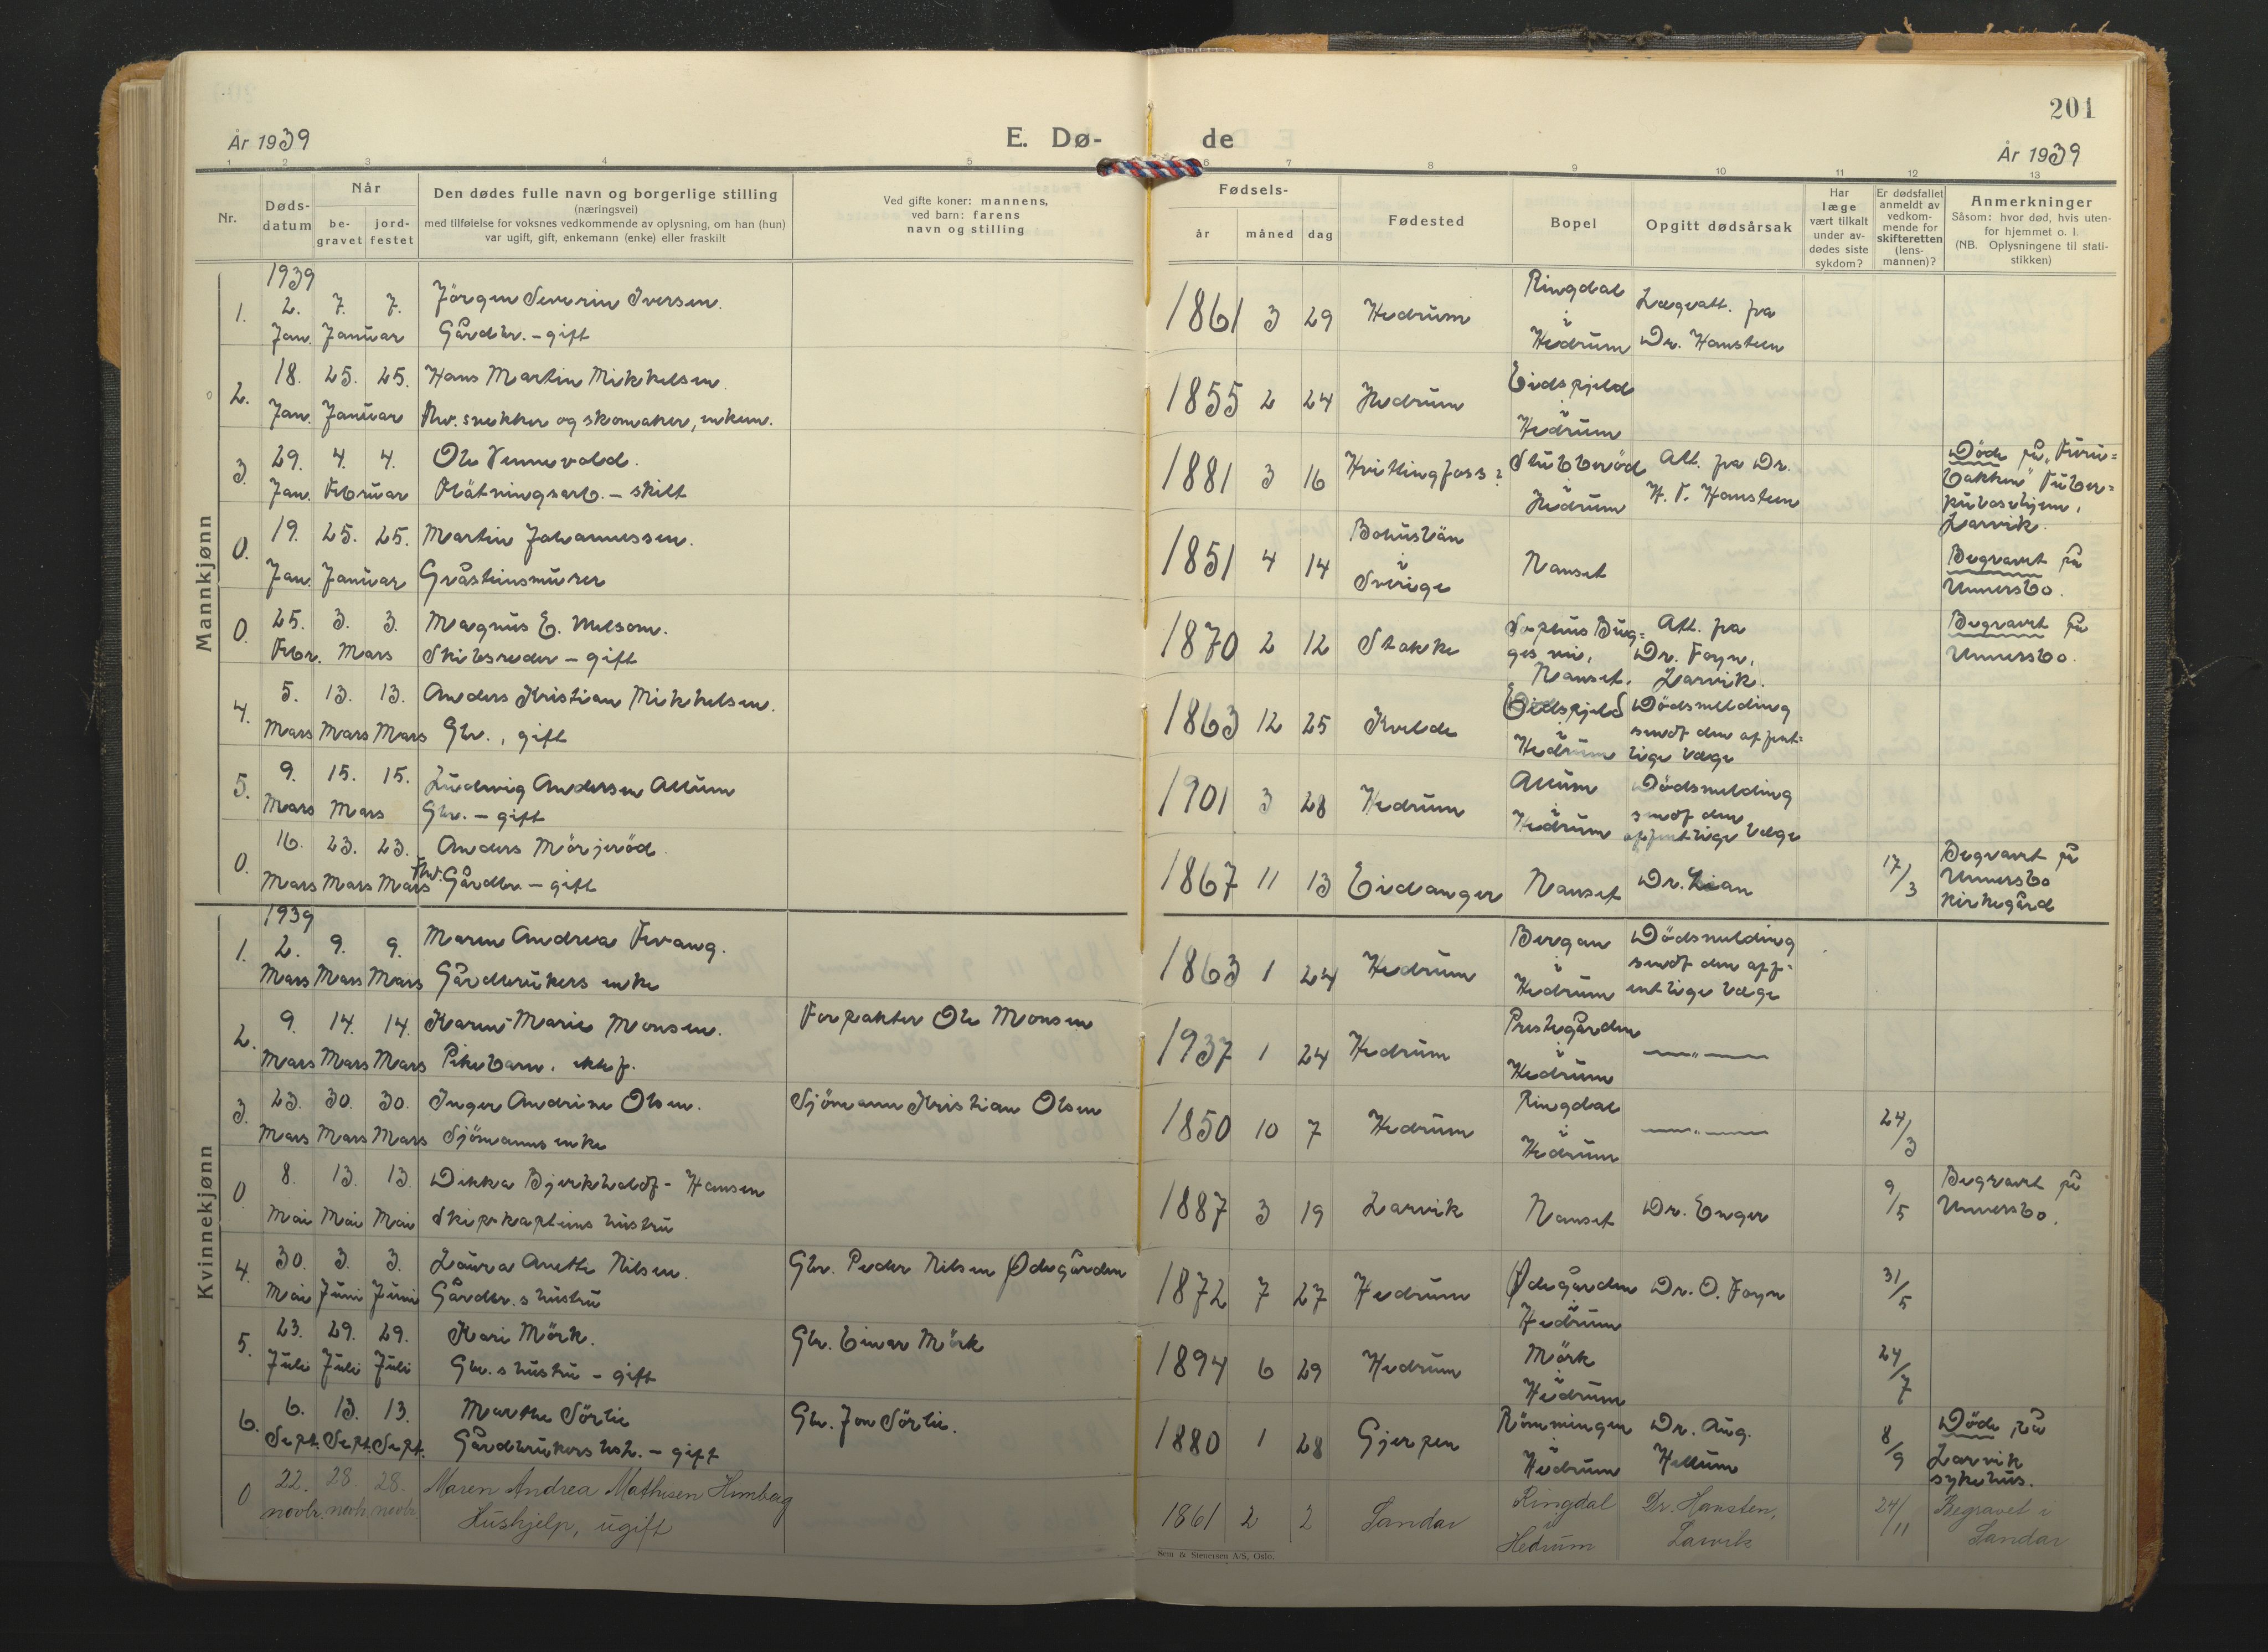 201
År 1939
E. Dø-
de
År 1939
1 2 3 4 5 6 7 8 9 10 11 12 13
Nr.
Døds-
datum
Når
be-
gravet
jord-
festet
Den dødes fulle navn og borgerlige stilling
(næringsvei)
med tilføielse for voksnes vedkommende av oplysning, om han (hun)
var ugift, gift, enkemann (enke) eller fraskilt
Ved gifte koner: mannens,
ved barn: farens
navn og stilling
Fødsels-
år måned dag
Fødested
Bopel
Opgitt dødsårsak
Har
læge
vært tilkalt
under av-
dødes siste
sykdom?
Er dødsfallet
anmeldt av
vedkom-
mende for
skifteretten
(lens-
mannen)?
Anmerkninger
Såsom: hvor død, hvis uten-
for hjemmet o. l.
(NB. Oplysningene til stati-
stikken)
Mannkjønn
1939
1. 2. 7. 7. Jörgen Severin Iversen.
Jan. Januar Gårdbr. – gift
1861 3 29 Hedrum
Ringdal
i
Hedrum
Lægeatt. fra
Dr. Hansteen
2. 18. 25. 25. Hans Martin Mikkelsen.
Jan. Januar Fhv. snekker og skomaker, enkem.
1855 2 24 Hedrum
Eidsfjeld
i
Hedrum
3. 29. 4. 4. Ole Tennevold.
Jan. Februar Flåtningsarb. – skilt
1881 3 16 Hvitlingfoss?
Stubberöd
i
Hedrum
Att. fra Dr.
H. F. Hansteen
Döde på "Furu=
bakken" Tuber=
kulosehjem,
Larvik.
0. 19. 25. 25. Martin Johannessen.
Jan. Januar Gråsteinsmurer
1851 4 14
Bohuslän
i
Sverige
Nanset
Begravet på
Undersbo.
0. 25. 3. 3. Magnus E. Melsom.
Febr. Mars Skibsreder – gift
1870 2 12 Stokke
Sophus Bug=
ges vei,
Nanset.
Att. fra
Dr. Foyn,
Larvik.
Begravet på
Undersbo.
4. 5. 13. 13. Anders Kristian Mikkelsen.
Mars Mars Mars Gbr., gift
1863 12 25 Kvelde
Eidsfjeld
i
Hedrum
Dödsmelding
sendt den offent=
lige læge
5. 9. 15. 15. Ludvig Andersen Allum
Mars Mars Gbr. – gift
1901 3 28 Hedrum
Allum
i
Hedrum
Dödsmelding
sendt den
offentlige læge
0. 16. 23. 23. Anders Mörjeröd.
Mars Mars Mars Fhv. Gårdbr – gift
1867 11 13 Eidanger Nanset Dr. Lian 17/3
Begravet på
Undersbo
kirkegård
Kvinnekjønn
1939
1. 2. 9. 9. Maren Andrea Fevang.
Mars Mars Mars Gårdbrukers enke
1863 1 24 Hedrum
Bergan
i
Hedrum
Dödsmelding
sendt den off-
entlige læge
2. 9. 14. 14. Karen-Marie Monsen. Forpakter Ole Monsen
Mars Mars Mars Pikebarn, ektef.
1937 1 24 Hedrum
Prestegården
i
Hedrum
—„—
3. 23. 30. 30. Inger Andrine Olsen. Sjömann Kristian Olsen
Mars Mars Mars Sjömanns enke
1850 10 7 Hedrum
Ringdal
i
Hedrum
—„— 24/3
0 8. 13. 13. Dikka Bjerkholdt-Hansen
Mai Mai Mai Skipskapteins hustru
1887 3 19 Larvik Nanset Dr. Enger 9/5
Begravet på
Undersbo.
4. 30. 3. 3. Laura Anette Nilsen. Gbr. Peder Nilsen Ødegården
Mai Juni Juni Gårdbr.s hustru
1872 7 27 Hedrum
Ødegården
i
Hedrum
Dr. O. Foyn 31/5
5. 23. 29. 29. Kari Mörk. Gbr. Einar Mörk
Juli Juli Juli Gbr.s hustru – gift
1894 6 29 Hedrum
Mörk
i
Hedrum
24/7
6. 6. 13. 13. Marthe Sörlie Gbr. Jon Sörlie.
Sept. Sept. Sept. Gårdbrukers hst. – gift
1880 1 28 Gjerpen
Römmingen
i
Hedrum
Dr. Aug.
Hellum
8/9
Döde på
Larvik
sykehus.
0 22. 28. 28. Maren Andrea Mathisen Himberg
novbr. novb. novbr. Hushjelp, ugift
1861 2 2 Sandar
Ringdal
i
Hedrum
Dr. Hansten,
Larvik
24/11
Begravet i
Sandar
Sem & Stenersen A/S, Oslo.